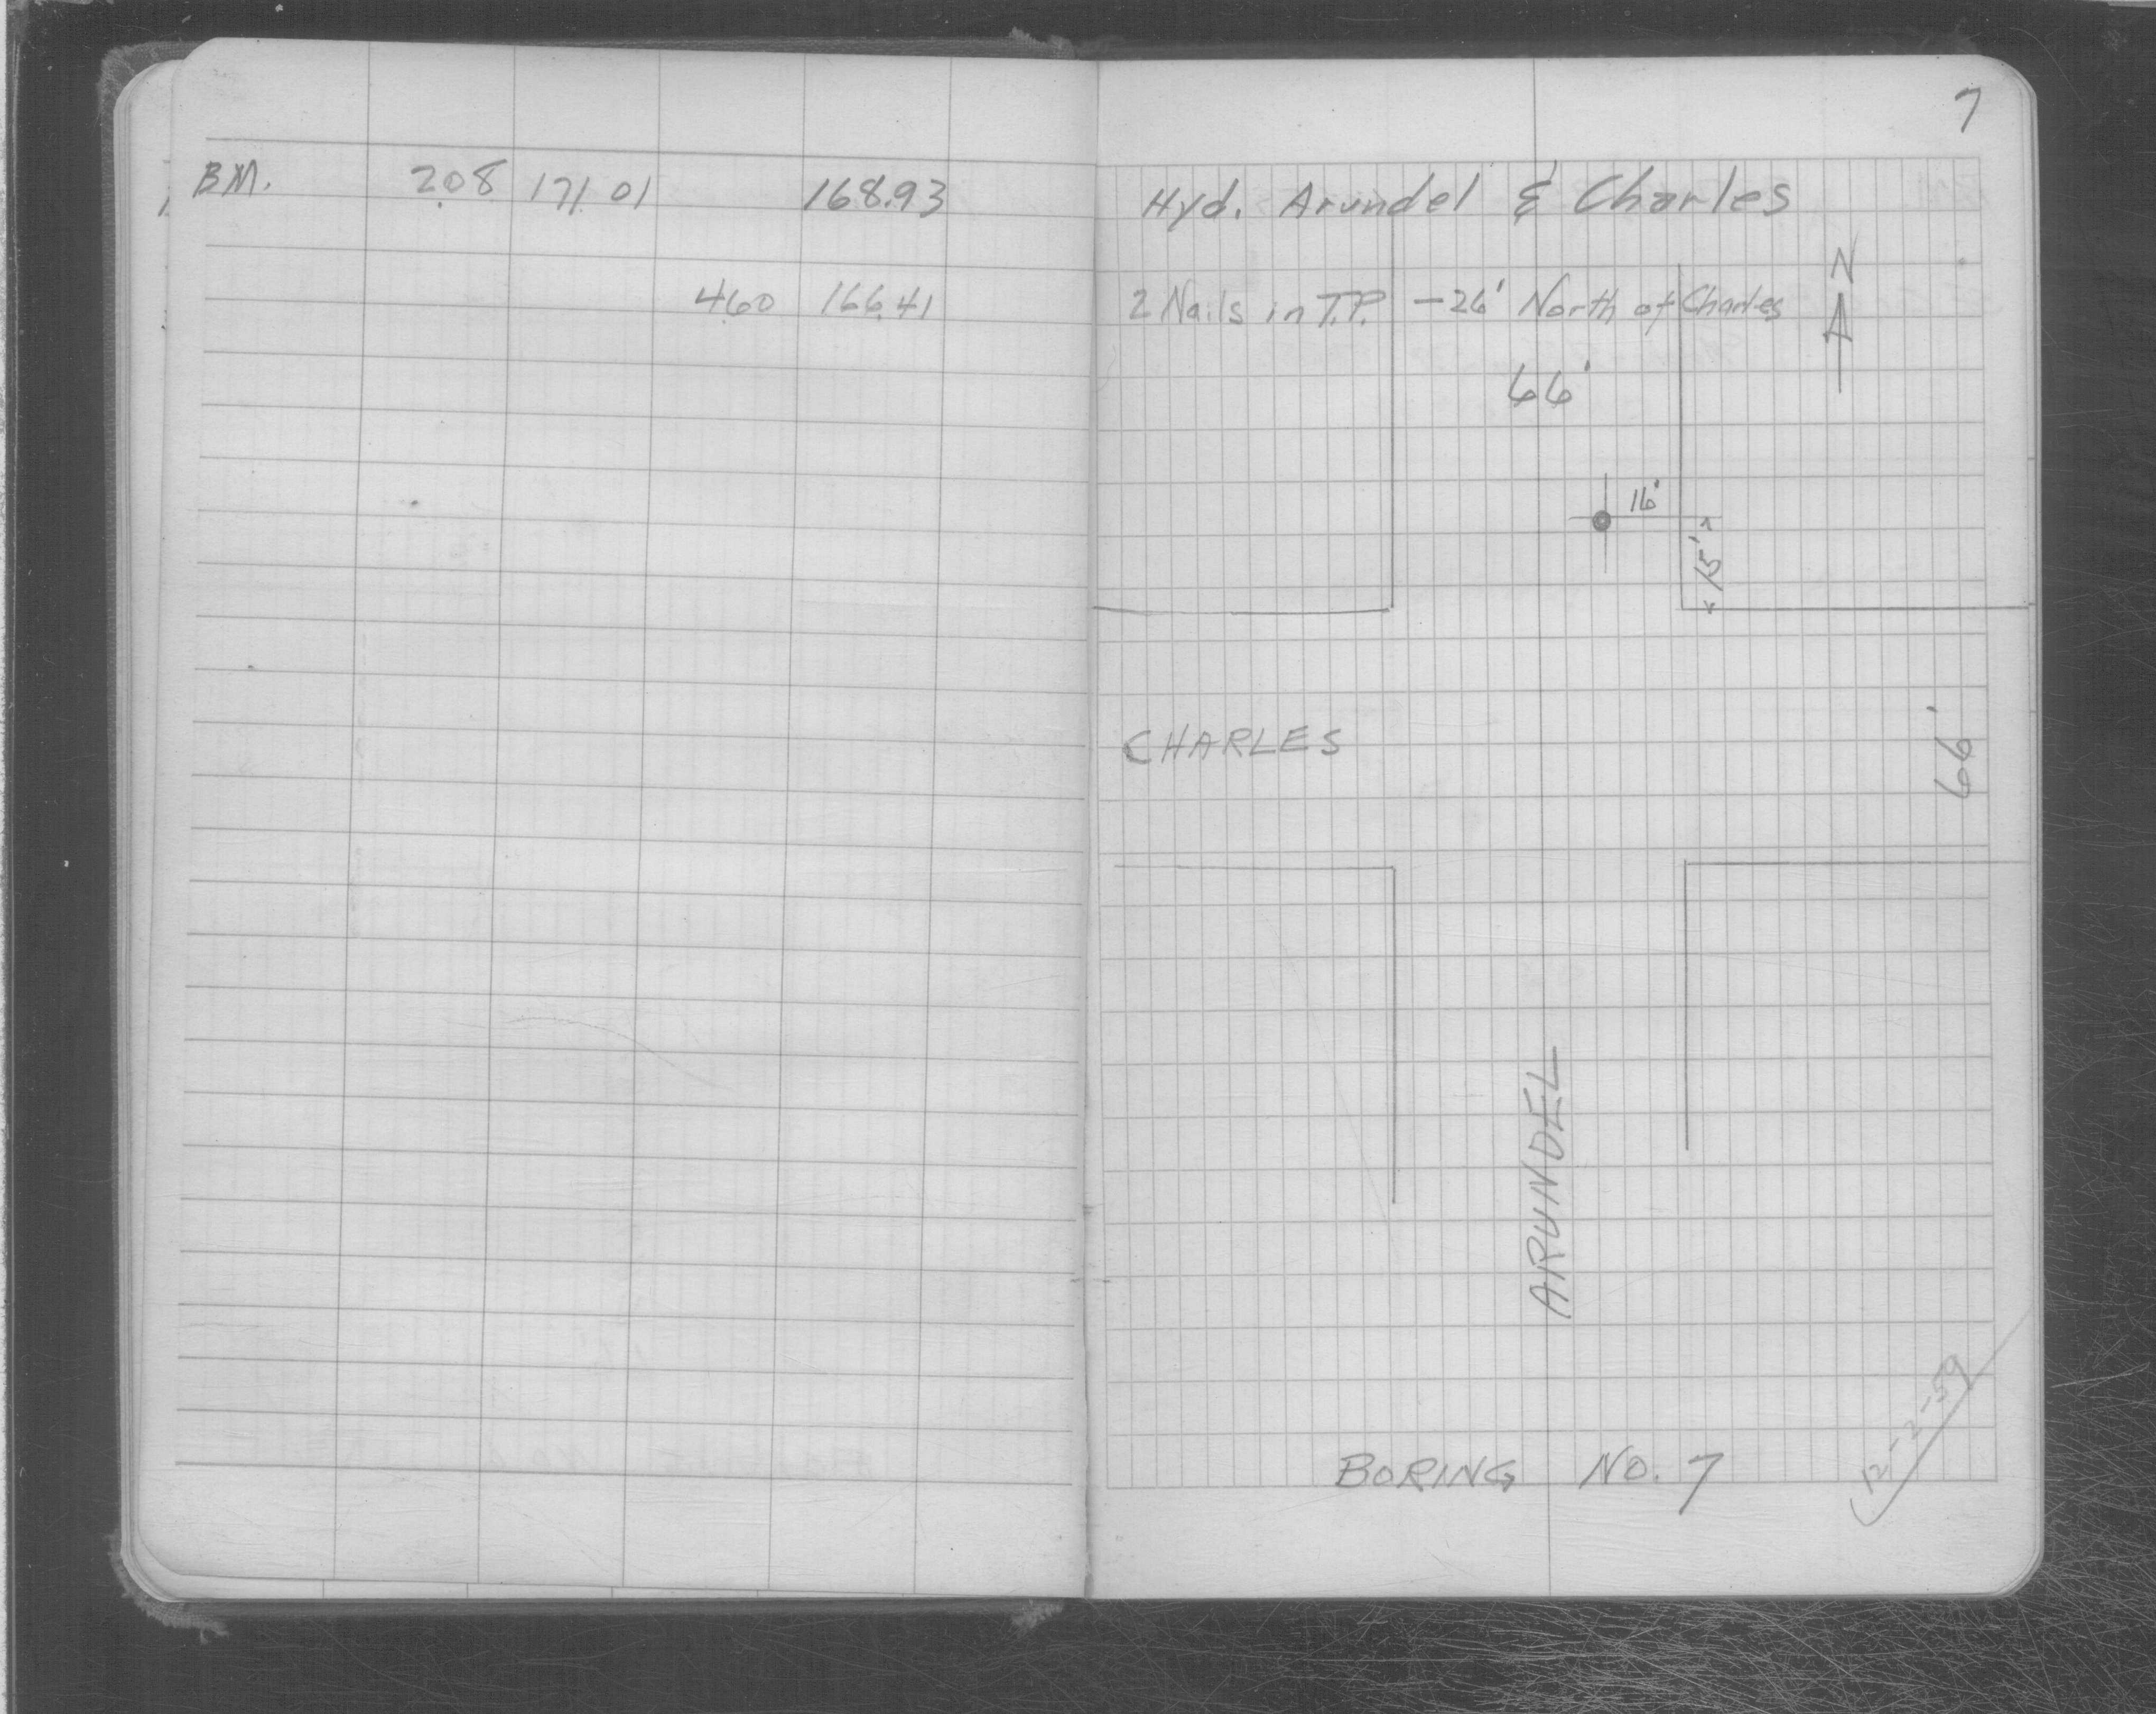 7
BM. 2.08 171.01 168.93
4.60 166.41
Hyd. Arundel & Charles
2 Nails in T.P. - 26' North of Charles
N
66'
16'
15'
CHARLES
66'
ARUNDEL
BORING No. 7
12-2-59